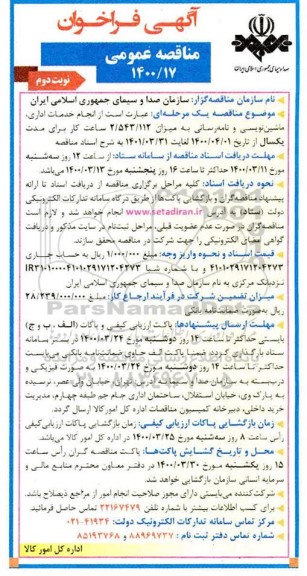 آگهی فراخوان
مناقصه عمومی
۱۴۰۰/۱۷
نوبت دوم
صدا و سیمای جمهوری اسلامی ایران
نام سازمان مناقصه‌گزار: سازمان صدا و سیمای جمهوری اسلامی ایران
موضوع مناقصه یک مرحله‌ای: عبارت است از انجام خدمات اداری،
ماشین‌نویسی و نامه‌رسانی به میزان ۲/۵۴۳/۱۱۲ ساعت کار برای مدت
یکسال از تاریخ ۱۴۰۰/۰۴/۰۱ لغایت ۱۴۰۱/۰۳/۳۱ به شرح اسناد مناقصه
مهلت دریافت اسناد مناقصه از سامانه ستاد: از ساعت ۱۲ روز سه‌شنبه
مورخ ۱۴۰۰/۰۳/۱۱ حداکثر تا ساعت ۱۶ روز پنجشنبه مورخ ۱۴۰۰/۰۳/۱۳ می‌باشد
نحوه دریافت اسناد: کلیه مراحل برگزاری مناقصه از دریافت اسناد تا ارائه
پیشنهاد مناقصه‌گران و بازگشایی پاکت‌ها از طریق درگاه سامانه تدارکات الکترونیکی
دولت (ستاد) به آدرس www.setadiran.ir انجام خواهد شد و لازم است
مناقصه‌گران در صورت عدم عضویت قبلی، مراحل ثبت‌نام در سایت مذکور و دریافت
گواهی امضای الکترونیکی را جهت شرکت در مناقصه محقق سازند.
قیمت اسناد و نحوه واریز وجه: مبلغ ۱/۰۰۰/۰۰۰ ریال به حساب جاری
نزد بانک مرکزی به نام سازمان صدا و سیمای جمهوری اسلامی ایران
میزان تضمین شرکت در فرآیند ارجاع کار: مبلغ ۲۸/۲۳۹/۰۰۰/۰۰۰
ریال به‌صورت ضمانت‌نامه بانکی
مهلت ارسال پیشنهادها: پاکت ارزیابی کیفی و پاکات (الف ـ ب و ج)
بایستی حداکثر تا ساعت ۱۴ روز دوشنبه مورخ ۱۴۰۰/۰۳/۲۴ در سامانه
حداکثر تا ساعت ۱۴ روز دوشنبه مورخ ۱۴۰۰/۰۳/۲۴ به صورت فیزیکی و
به پارک وی، خیابان استقلال، ساختمان اداری جام جم طبقه چهارم، مدیریت
خرید داخلی، دبیرخانه کمیسیون مناقصات اداره کل امور کالا ارسال گردد.
زمان بازگشایی پاکات ارزیابی کیفی: زمان بازگشایی پاکات ارزیابی کیفی
رأس ساعت ۸ روز سه‌شنبه مورخ ۱۴۰۰/۰۳/۲۵ در اداره کل امور کالا می‌باشد.
محل و تاریخ گشایش پاکت‌ها: پاکت مناقصه گران رأس ساعت
۱۵ روز یکشنبه مورخ ۱۴۰۰/۰۳/۳۰ در دفتر معاون محترم منابع مالی و
سرمایه انسانی سازمان بازگشایی خواهد شد.
شرکت‌کننده می‌بایستی دارای مجوز صلاحیت انجام امور از مراجع ذیصلاح باشد.
برای کسب اطلاعات بیشتر با شماره تلفن ۲۲۱۶۷۴۷۹ تماس حاصل فرمائید.
مرکز تماس سامانه تدارکات الکترونیک دولت: ۴۱۹۳۴-۰۲۱
شماره تماس دفتر ثبت نام: ۸۸۹۶۹۷۳۷ و ۸۵۱۹۳۷۶۸
اداره کل امور کالا